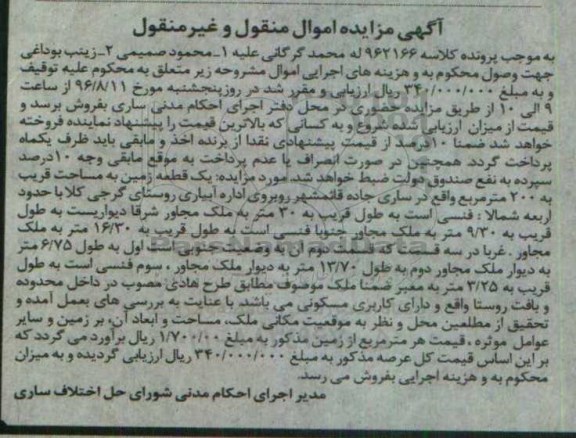 آگهی مزایده اموال منقول و غیرمنقول
به موجب پرونده کلاسه ۹۶۲۱۶۶ له محمد گرگانی علیه ۱_محمود صمیمی ۲_زینب بوداغی
جهت وصول محکوم به و هزینه های اجرایی اموال مشروحه زیر متعلق به محکوم علیه توقیف
و به مبلغ ۳۴۰/۰۰۰/۰۰۰ ریال ارزیابی و مقرر شد در روز پنجشنبه مورخ ۹۶/۸/۱۱ از ساعت
۹ الی ۱۰ از طریق مزایده حضوری در محل دفتر اجرای احکام مدنی ساری بفروش برسد و
قیمت از میزان ارزیابی شده شروع و به کسانی که بالاترین قیمت را پیشنهاد نماینده فروخته
خواهد شد ضمنا ۱۰درصد از قیمت پیشنهادی نقدا از برنده اخذ و مابقی باید ظرف یکماه
پرداخت گردد. همچنین در صورت انصراف یا عدم پرداخت به موقع مابقی وجه ۱۰درصد
سپرده به نفع صندوق دولت ضبط خواهد شد. مورد مزایده: یک قطعه زمین به مساحت قریب
به ۲۰۰ مترمربع واقع در ساری جاده قائمشهر روبروی اداره آبیاری روستای گرجی کلا با حدود
اربعه شمالا : فنسی است به طول قریب به ۳۰ متر به ملک مجاور شرقا دیواریست به طول
قریب به ۹/۳۰ متر به ملک مجاور جنوبا فنسی است به طول قریب به ۱۶/۳۰ متر به ملک
مجاور . غربا در سه قسمت که قسمت دوم آن به وضعیت جنوبی است اول به طول ۶/۷۵ متر
به دیوار ملک مجاور دوم به طول ۱۳/۷۰ متر به دیوار ملک مجاور ، سوم فنسی است به طول
قریب به ۳/۲۵ متر به معبر ضمنا ملک موصوف مطابق طرح هادی مصوب در داخل محدوده
و بافت روستا واقع و دارای کاربری مسکونی می باشد با عنایت به بررسی های بعمل آمده و
تحقیق از مطلعین محل و نظر به موقعیت مکانی ملک، مساحت و ابعاد آن، بر زمین و سایر
عوامل موثره ، قیمت هر مترمربع از زمین مذکور به مبلغ ۱/۷۰۰/۰۰ ریال برآورد می گردد که
بر این اساس قیمت کل عرصه مذکور به مبلغ ۳۴۰/۰۰۰/۰۰۰ ریال ارزیابی گردیده و به میزان
محکوم به و هزینه اجرایی بفروش می رسد.
مدیر اجرای احکام مدنی شورای حل اختلاف ساری